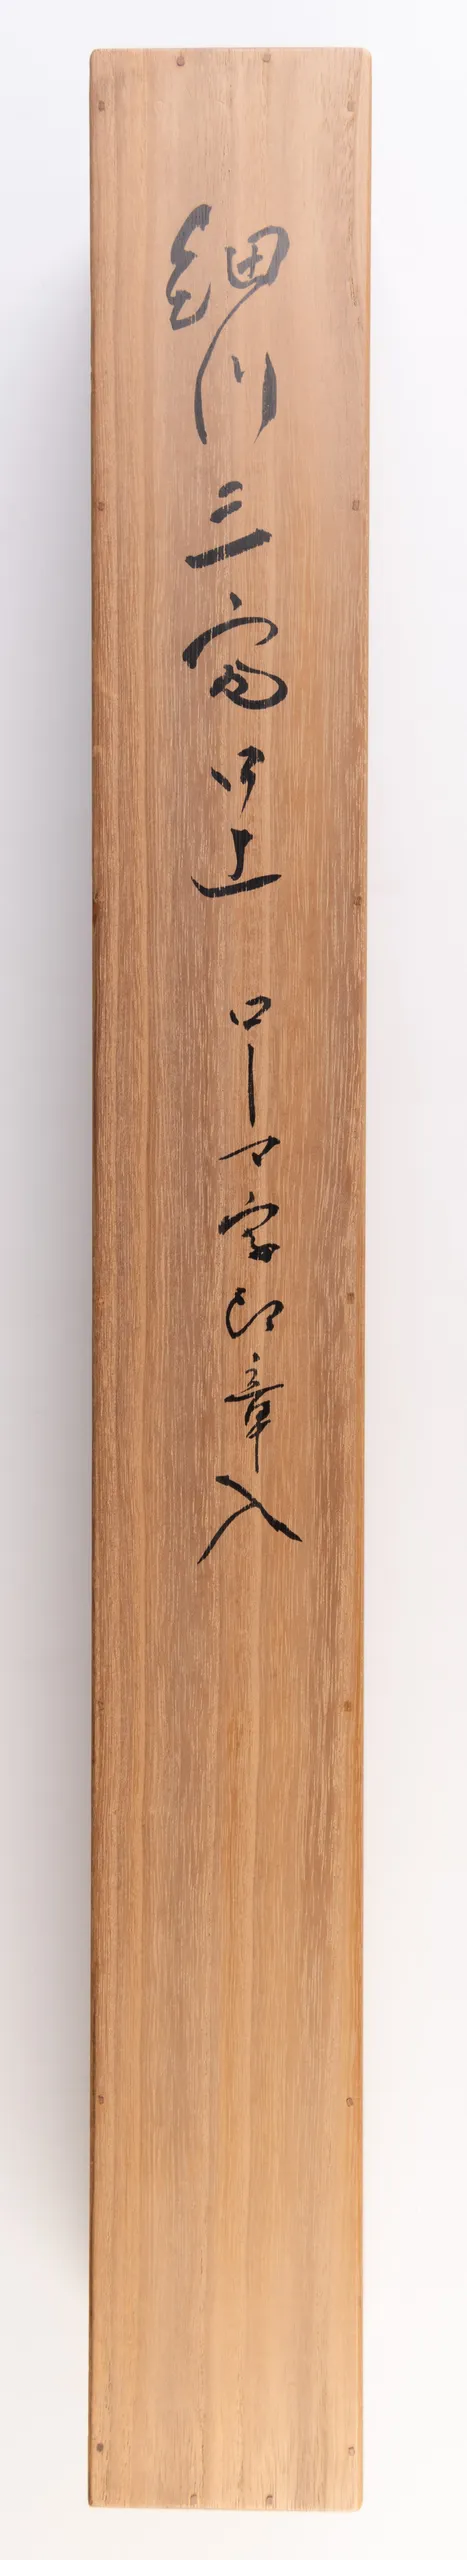 細川三斎口上 ローマ字印章入